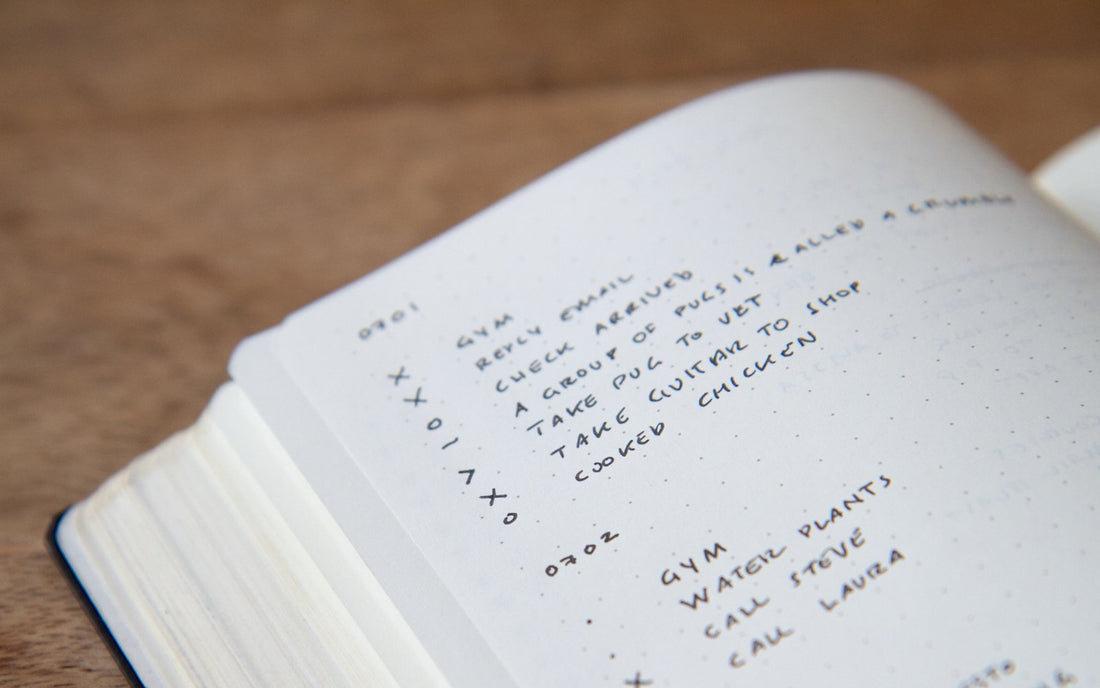 0701
X GYM
X REPLY EMAIL
O CHECK ARRIVED
– A GROUP OF PUGS IS CALLED A GRUMBLE
> TAKE PUG TO VET
X TAKE GUITAR TO SHOP
O COOKED CHICKEN
0702
· GYM
· WATER PLANTS
X CALL STEVE
CALL LAURA